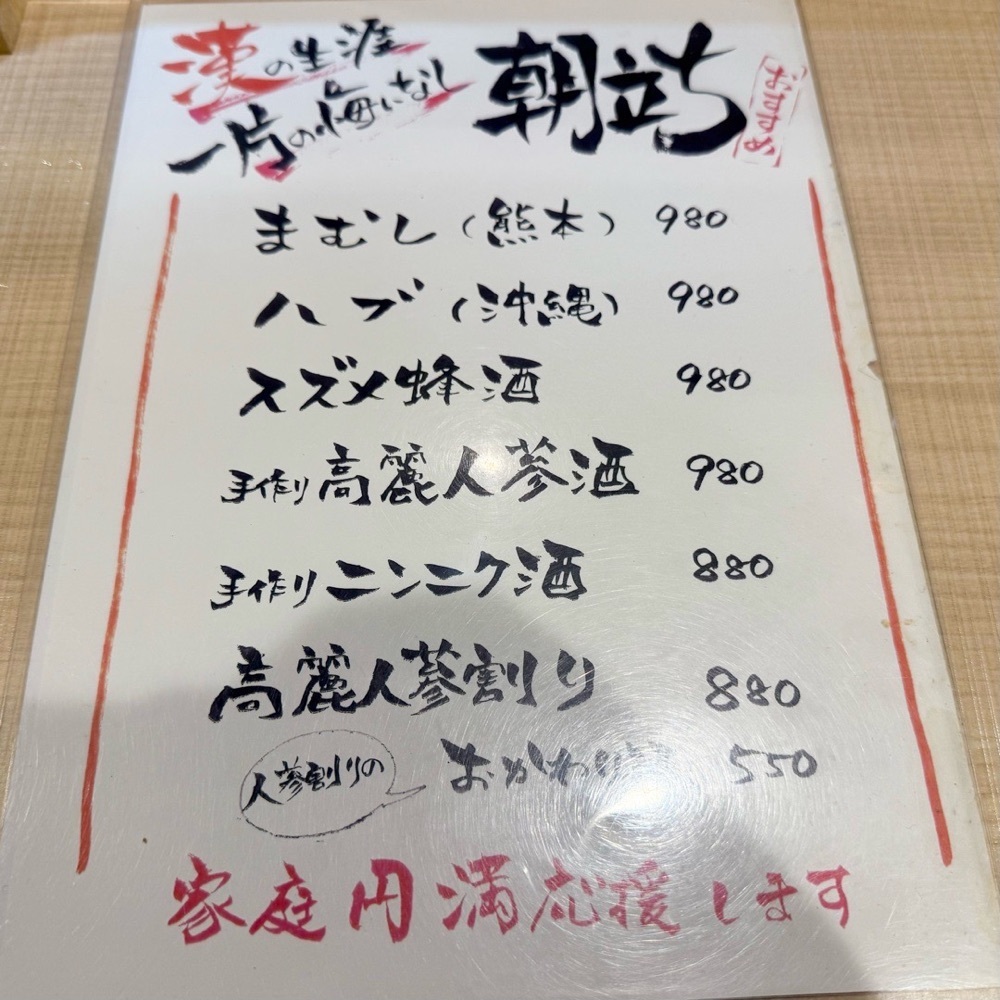 漢の生涯
一片の悔いなし
朝立ち
おすすめ
まむし(熊本) 980
ハブ(沖縄) 980
スズメ蜂酒 980
手作り高麗人蔘酒 980
手作りニンニク酒 880
高麗人蔘割り 880
人蔘割りの おかわり 550
家庭円満応援します